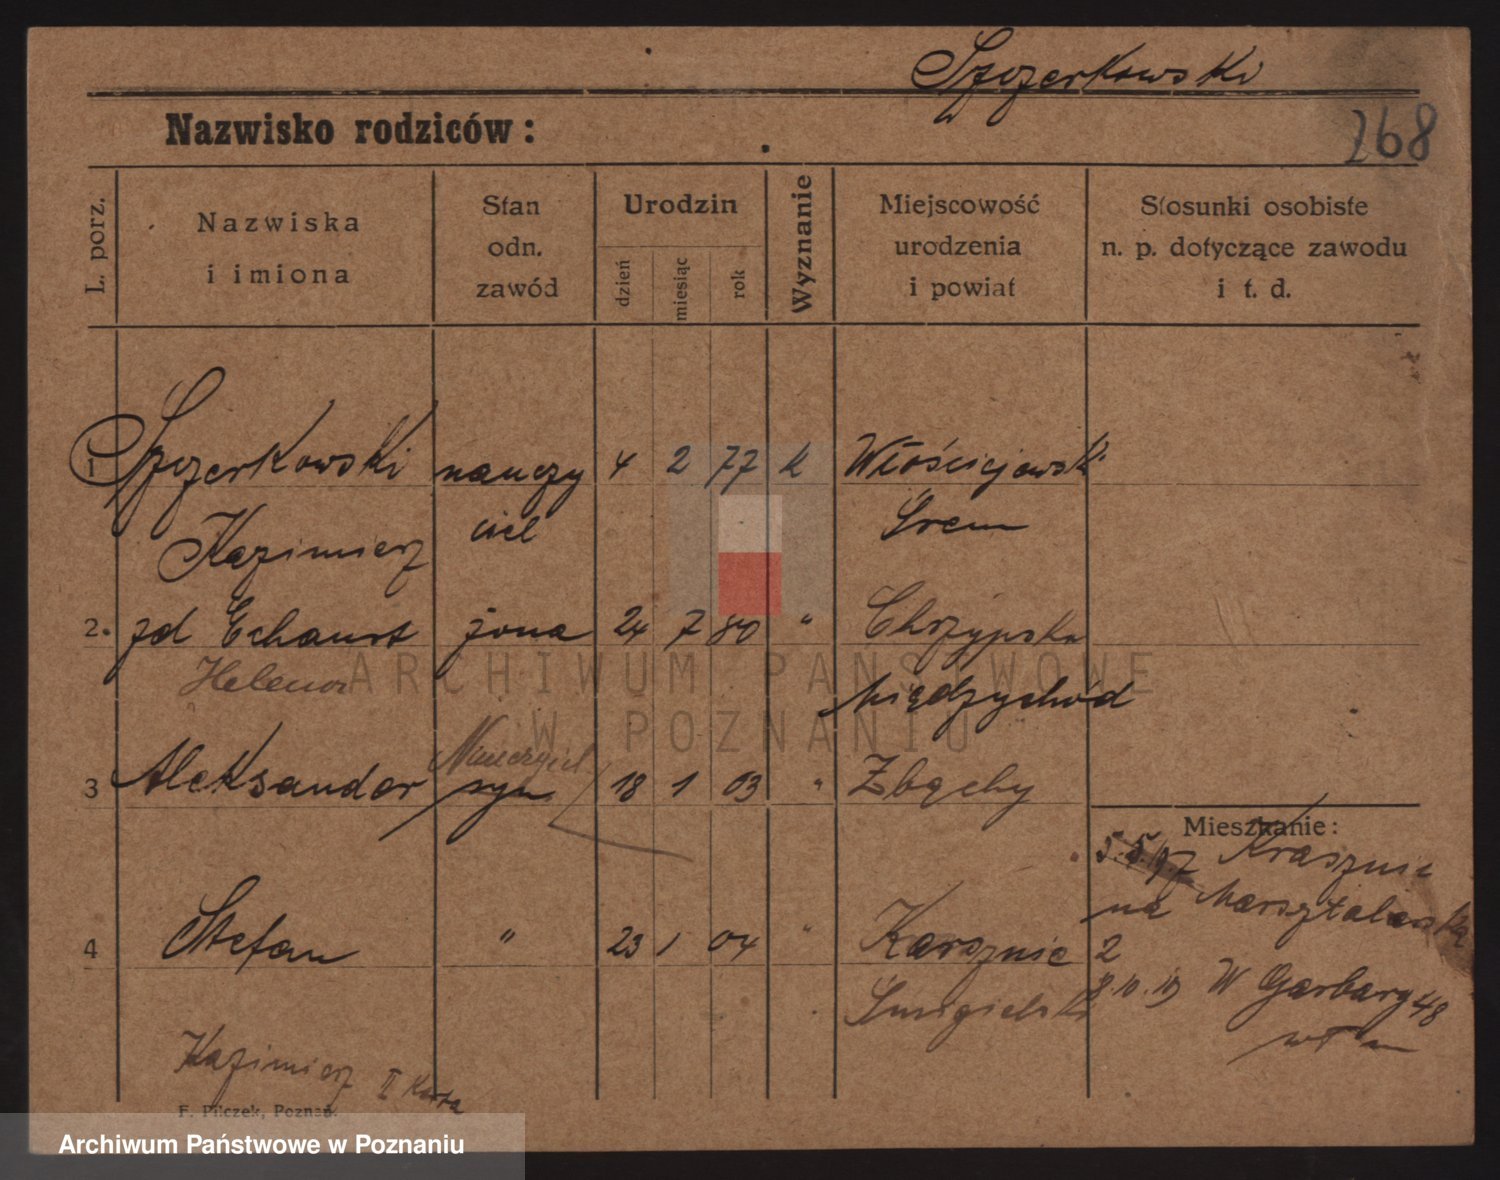 Szczerkowski
268
Nazwisko rodziców:
L. porz.
Nazwiska
i imiona
Stan
odn.
zawód
Urodzin
dzień
miesiąc
rok
Wyznanie
Miejscowość
urodzenia
i powiat
Stosunki osobiste
n. p. dotyczące zawodu
i t. d.
1 Szczerkowski nauczy 4 2 77 k Włościejewski
Kazimierz ciel Śrem
2. zd Echaust żona 24 7 80 " Chrzypsko
Helena
Międzychód
Nauczyciel
3 Aleksander syn 18 1 03 " Zbąchy
Mieszkanie:
5.5.97 Krasznic
na Marsztalarską
4 Stefan " 23 1 04 " Karsznic 2
Smigielski 8.10.19 W Garbary 48
wł m
Kazimierz II Karta
F. Pilczek, Poznań.
ARCHIWUM PAŃSTWOWE
W POZNANIU
Archiwum Państwowe w Poznaniu